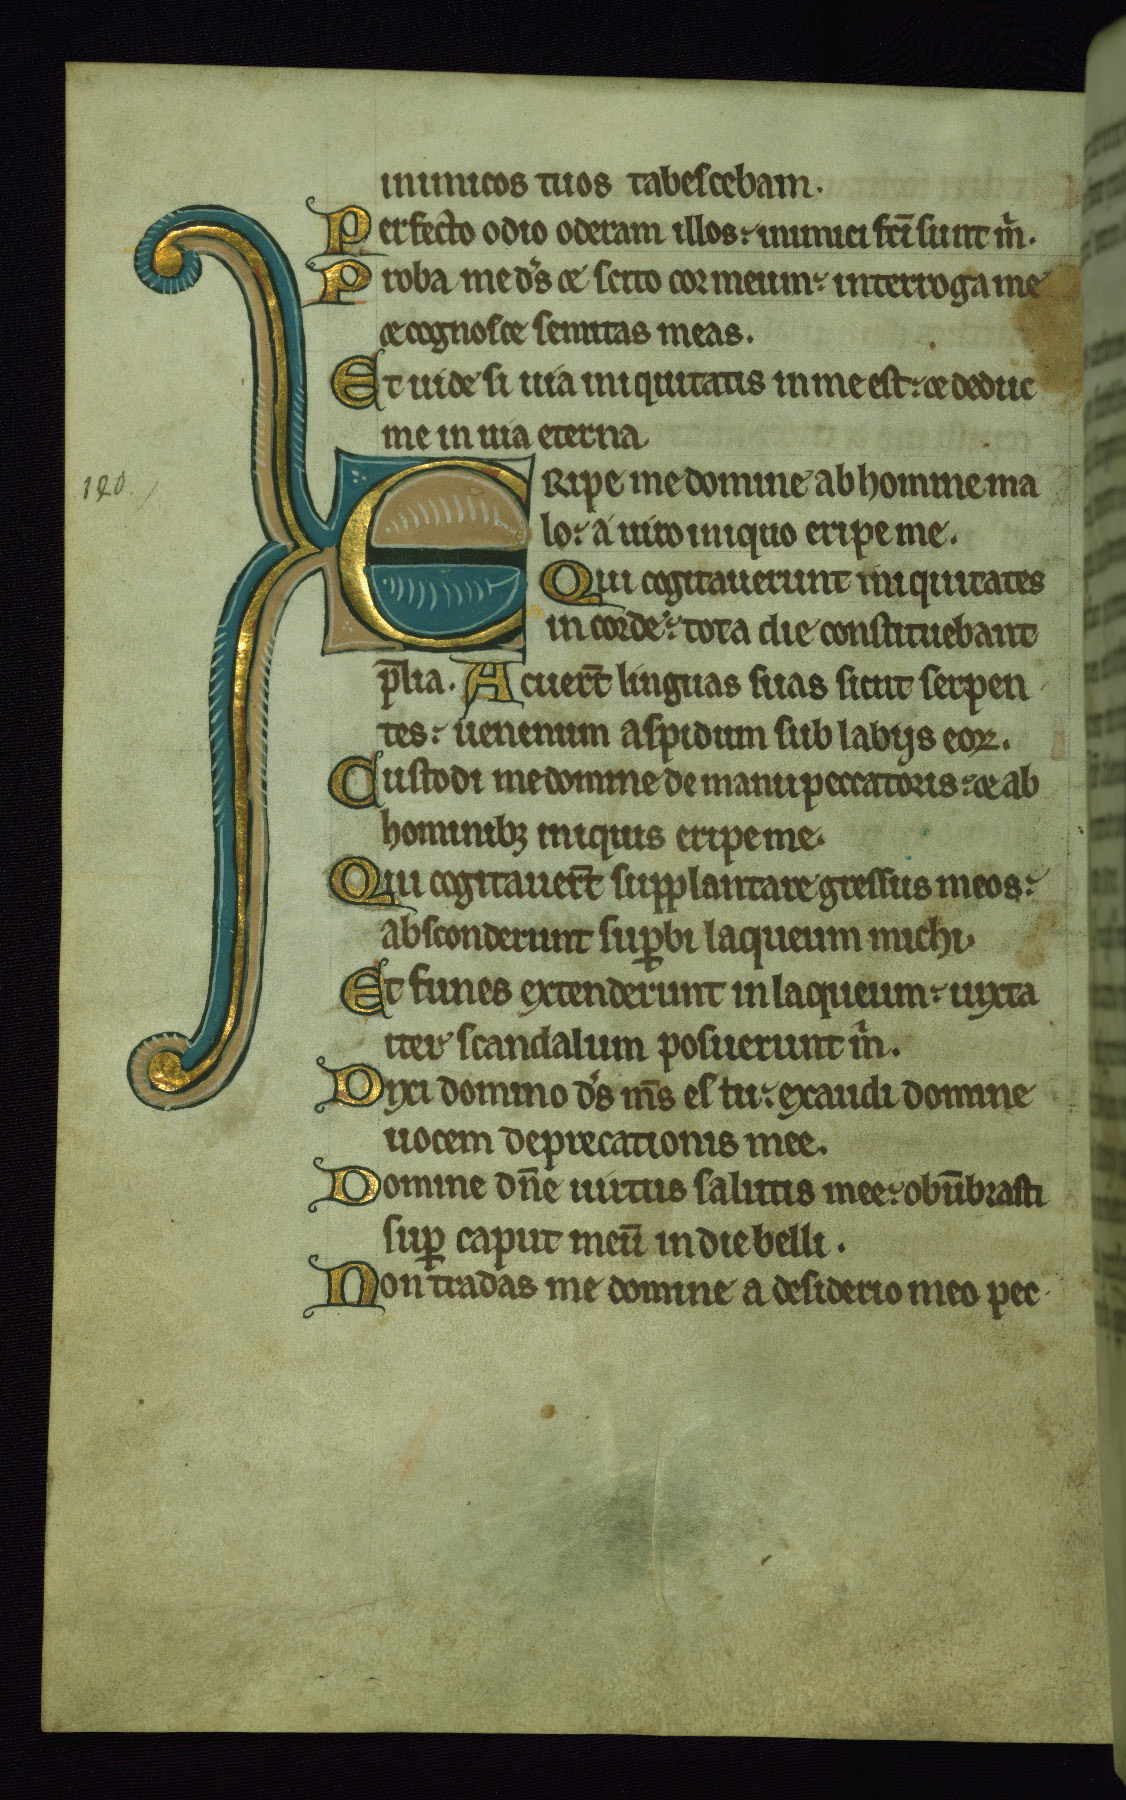 inimicos tuos tabescebam.
Perfecto odio oderam illos: inimici fcī sunt m̄.
Proba me ds̄ et scito cor meum: interroga me
et cognosce semitas meas.
Et uide si uia iniquitatis in me est: et deduc
me in uia eterna
ERipe me domine ab homine ma
lo: a uiro iniquo eripe me.
Qui cogitauerunt iniquitates
in corde: tota die constituebant
p̄lia. Acuer̄t linguas suas sicut serpen
tes: uenenum aspidum sub labijs eoꝝ.
Custodi me domine de manu peccatoris: et ab
hominibꝫ iniquis eripe me.
Qui cogitauer̄t supplantare gressus meos:
absconderunt suꝑbi laqueum michi.
Et funes extenderunt in laqueum: iuxta
iter scandalum posuerunt m̄.
Dixi domino ds̄ ms̄ es tu: exaudi domine
uocem deprecationis mee.
Domine dn̄e uirtus salutis mee: obūbrasti
suꝑ caput meū in die belli.
Non tradas me domine a desiderio meo pec